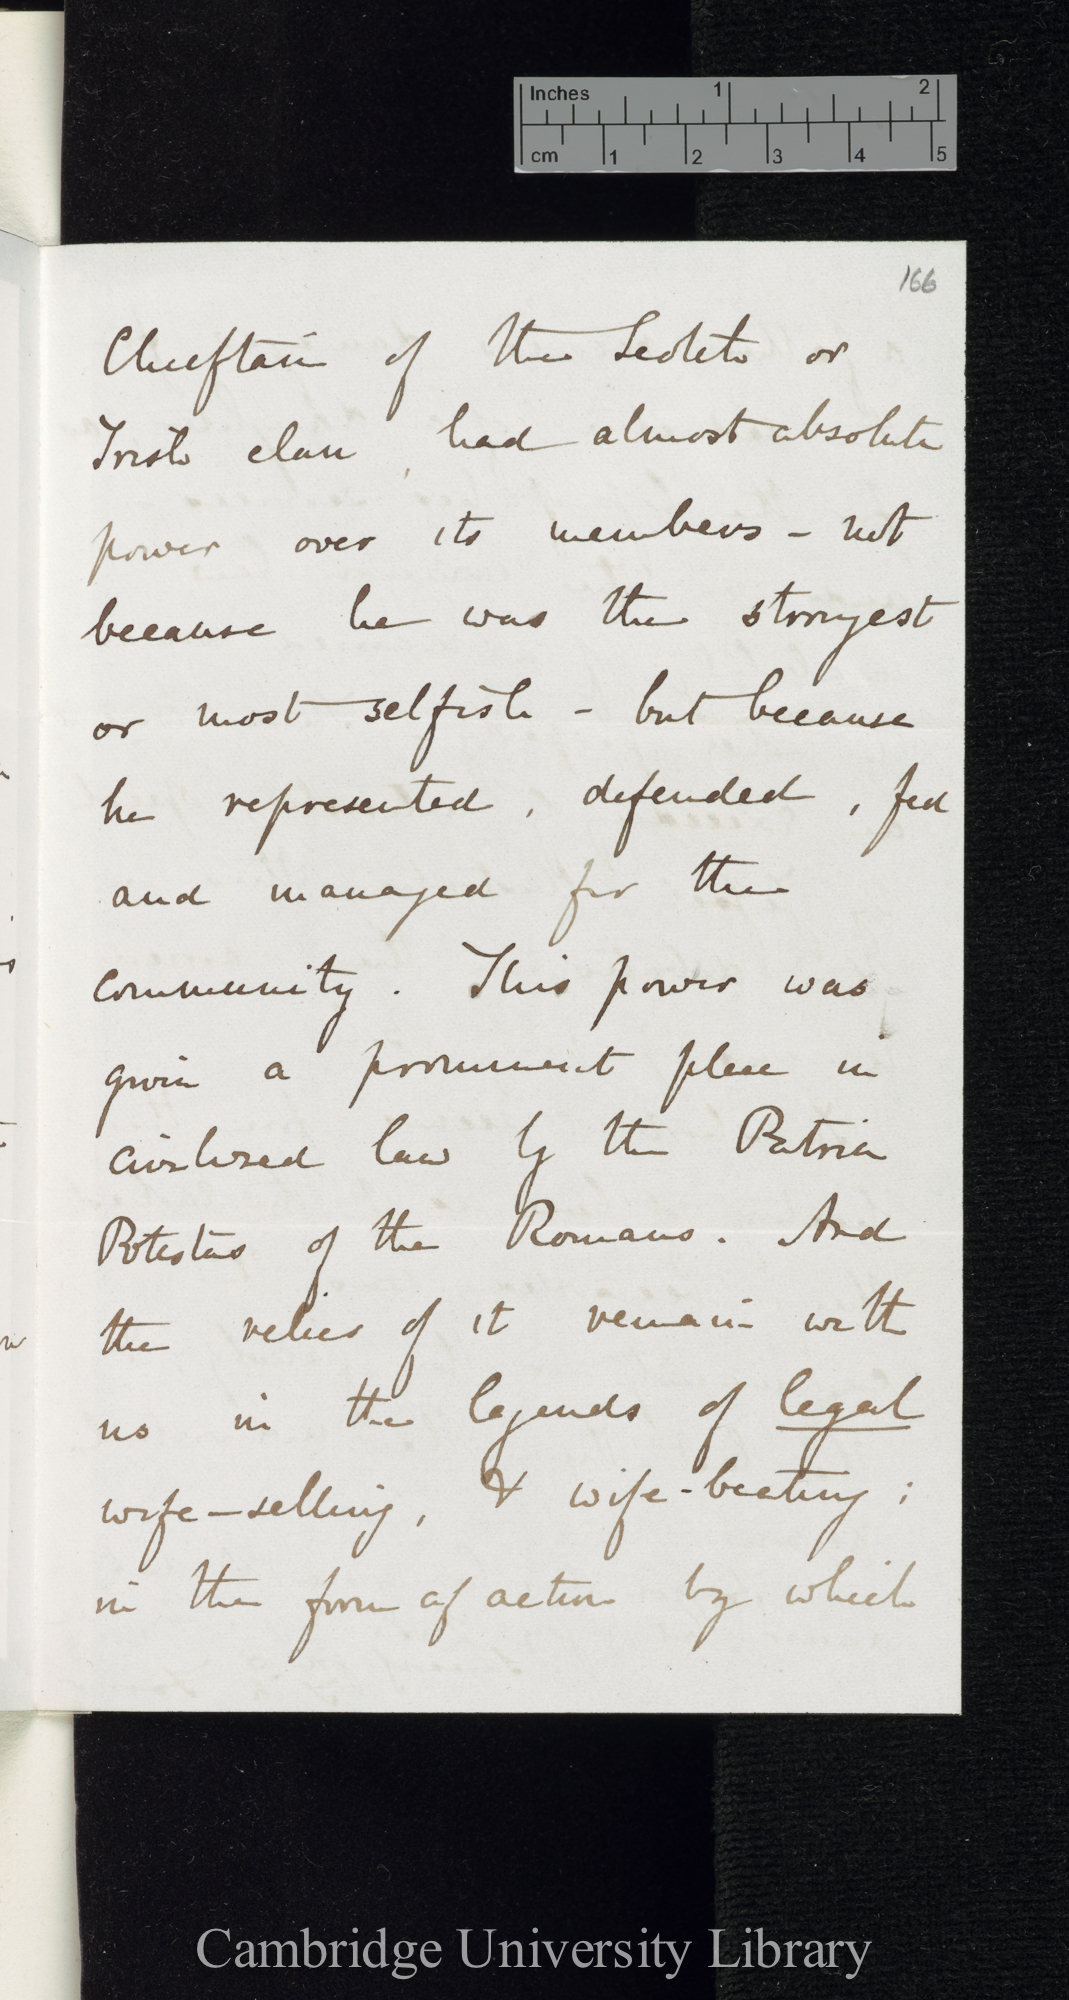 Inches 1 2
cm 1 2 3 4 5
166
Chieftain of the Scotch or
Irish clan, had almost absolute
power over its members - not
because he was the strongest
or most selfish - but because
he represented, defended, fed
and managed for the
community. This power was
given a prominent place in
civilised law by the Patria
Potestas of the Romans. And
the relics of it remain with
us in the legends of legal
wife-selling, & wife-beating;
in the form of action by which
Cambridge University Library